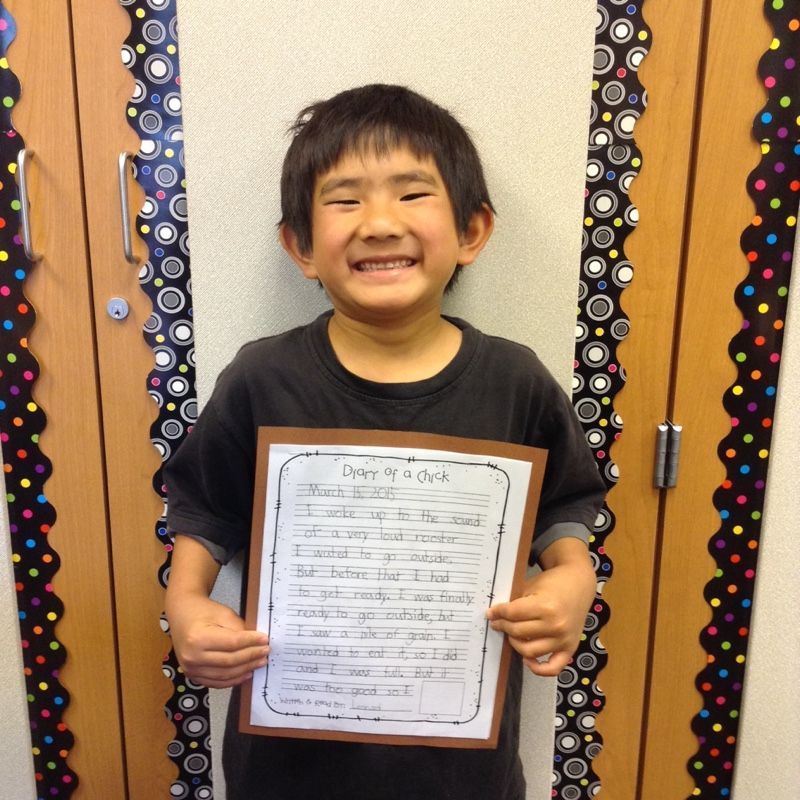 Diary of a Chick
March 15, 2015
I woke up to the sound
of a very loud rooster
I wated to go outside,
But before that I had
to get ready. I was finally
ready to go outside, but
I saw a pile of grain. I
wanted to eat it, so I did
and I was full. But it
was too good so I
Written & Read By: Leonard